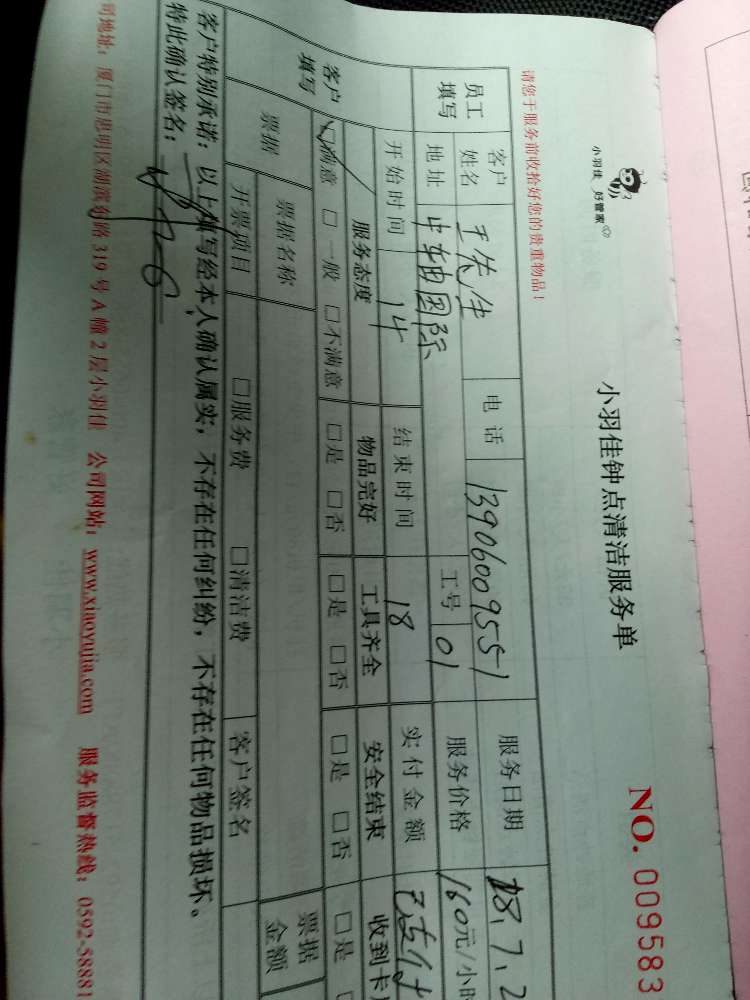 小羽佳 好管家
小羽佳钟点清洁服务单
NO. 009583
请您于服务前收拾好您的贵重物品！
员工填写 客户姓名 王先生 电话 13906009551 服务日期 18.7.2
地址 中轴国际 工号 01 服务价格 160元/小时
开始时间 14 结束时间 18 实付金额 已支付
客户填写 服务态度 物品完好 工具齐全 安全结束 收到卡
☑满意 □一般 □不满意 □是 □否 □是 □否 □是 □否 □是
票据 票据名称 票据金额
开票项目 □服务费 □清洁费 客户签名
客户特别承诺：以上填写经本人确认属实，不存在任何纠纷，不存在任何物品损坏。
特此确认签名：
司地址：厦门市思明区湖滨东路319号A幢2层小羽佳 公司网站：www.xiaoyujia.com 服务监督热线：0592-58881